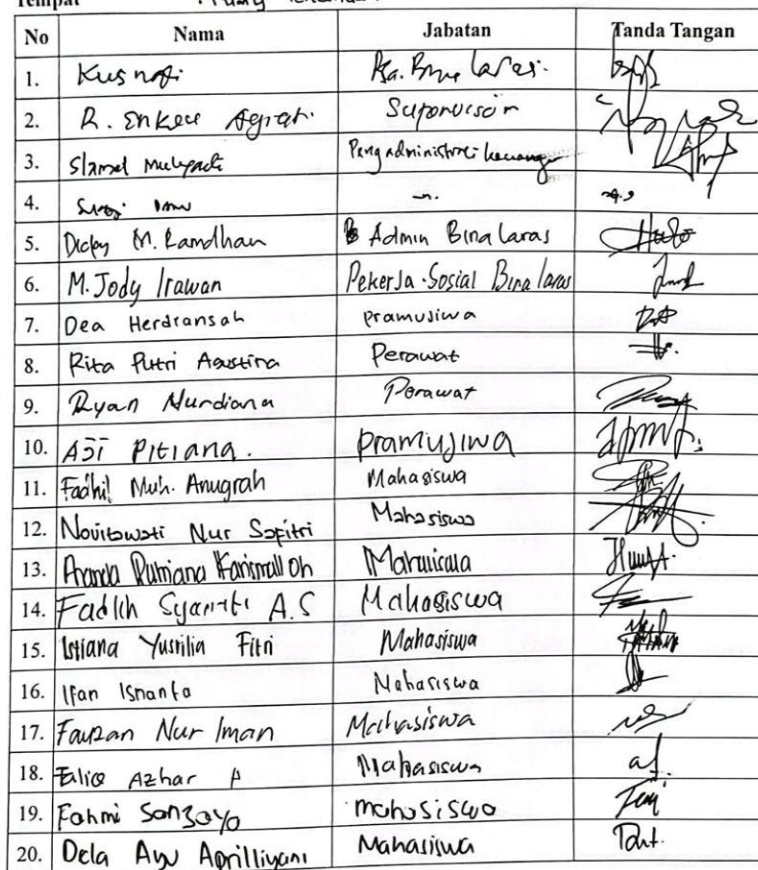 Tempat :
No Nama Jabatan Tanda Tangan
1. Kusnafi Ka. Bina laras.
2. R. Enkeu Agiati Supervisor
3. Slamet Mulyadi Pengadministrasi keuangan
4.
5. Dicky M. Ramdhan Admin Bina laras
6. M. Jody Irawan Pekerja Sosial Bina laras
7. Dea Herdiansah pramujiwa
8. Rita Putri Agustina Perawat
9. Ryan Nurdiana Perawat
10. Asi Pitiana. pramujiwa
11. Fadhil Muh. Anugrah Mahasiswa
12. Novitawati Nur Safitri Mahasiswa
13. Ananda Mahasiswa
14. Fadlih A.S Mahasiswa
15. Istiana Yusrilia Fitri Mahasiswa
16. Ifan Isnanto Mahasiswa
17. Fauzan Nur Iman Mahasiswa
18. Azhar Mahasiswa
19. Fahmi Sanjaya mahasiswa
20. Dela Ayu Aprilliyani Mahasiswa